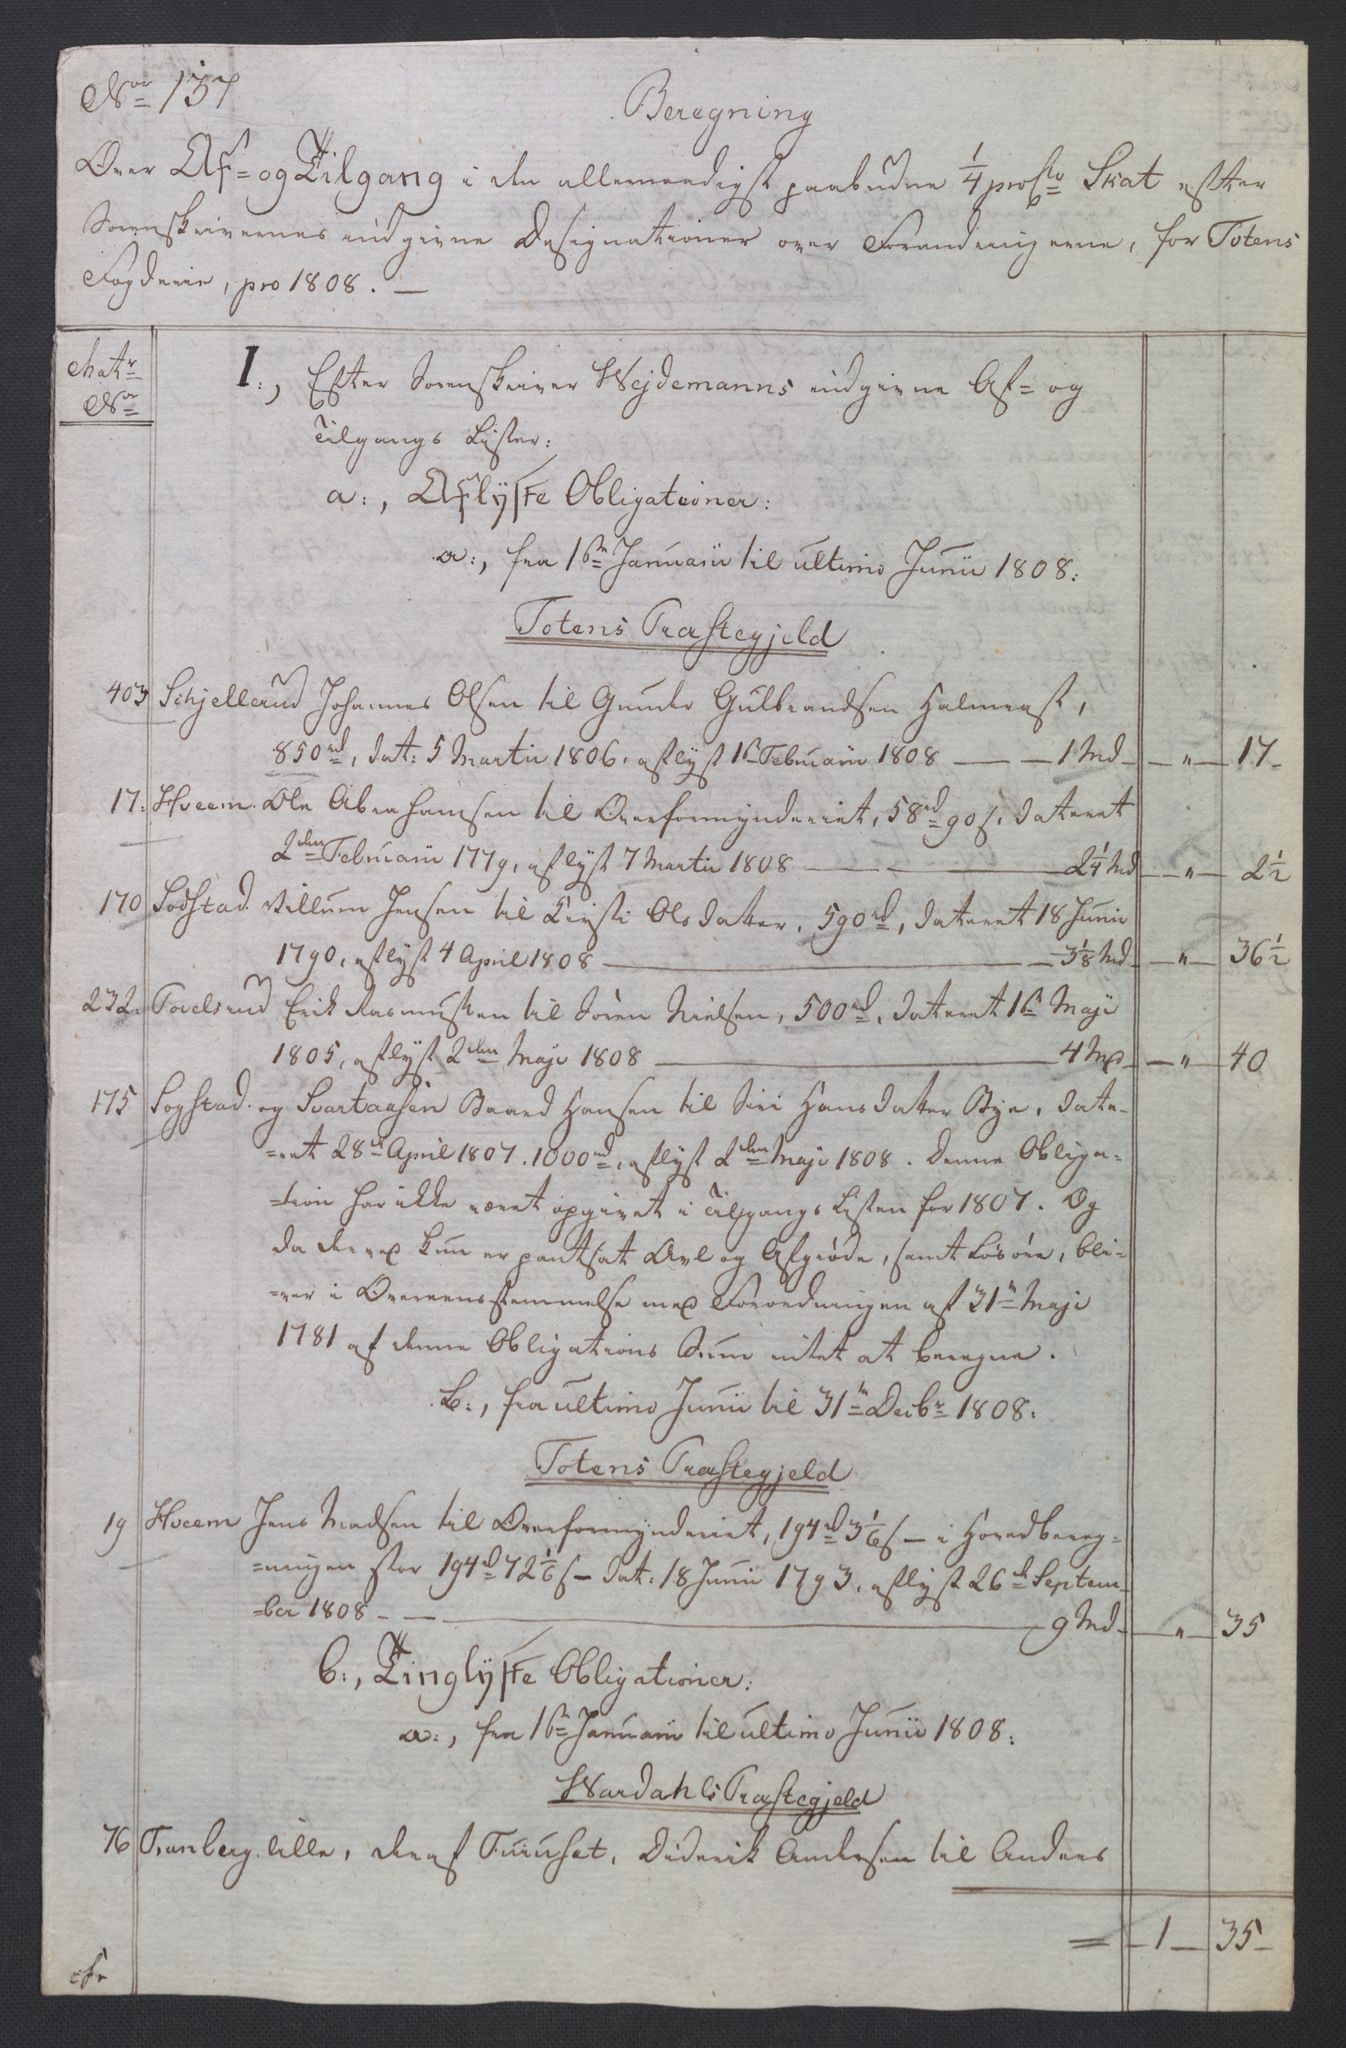 No 157
Beregning
Over Af- og Tilgang i den allernaadigst paabudne 1/4 proCto Skat efter
Sorenskrivernes indgivne Designationer over Forandringerne, for Totens
Fogderie, pro 1808. —
Matr No
I., Efter Sorenskriver Wejdemanns indgivne Af- og
Tilgangs Lister:
a:, Aflyste Obligationer:
a:, fra 16n Januarii til ultimo Junii 1808:
Totens Præstegjeld
403 Schjellerud Johannes Olsen til Gunder Gulbrandsen Halmrast,
850rd, dat: 5 Martii 1806, aflyst 16 Februarii 1808 — 1 Md — " — 17 —
17. Hveem. Ole Abrahamsen til Overformynderiet, 58rd 90 s, dateret
2den Februarii 1779, aflyst 7 Martii 1808 — 2 1/4 Md — " — 2 1/2
170 Sodstad. Villum Jensen til Kirsti Olsdatter, 590rd, dateret 18 Junii
1790, aflyst 4 April 1808 — 3 1/8 Md — " — 36 1/2
232. Povelsrud Erik Rasmussen til Sören Nielsen, 500rd, dateret 16 Maji
1805, aflyst 2den Maji 1808 — 4 Md — " — 40
175 Sogstad. og Svartaasen Baard Hansen til Siri Hansdatter Bye, date-
-ret 28de April 1807. 1000rd, aflyst 2den Maji 1808. Denne Obliga-
-tion har ikke været opgivet i Tilgangs Listen for 1807. Og
da derved kun er pantsat Avl og Afgröde, samt Lösöre, bli-
-ver i Overeensstemmelse med Forordningen af 31n Maji
1781 af denne Obligations Sum intet at beregne.
b:, fra ultimo Junii til 31n Decbr 1808:
Totens Præstegjeld
19 Hveem Jens Madsen til Overformynderiet, 194rd 3 1/6 s — i Hovedbereg-
-ningen stor 194rd 72 1/6 s — dat: 18 Junii 1793, aflyst 26de Septem-
-ber 1808 — 9 Md — " — 35
b:, Tinglyste Obligationer:
a:, fra 16n Januarii til ultimo Junii 1808:
Wardahls Præstegjeld
76 Tranberg lille, deraf Furuset, Diderik Andersen til Anders
= — 1 — 35 —